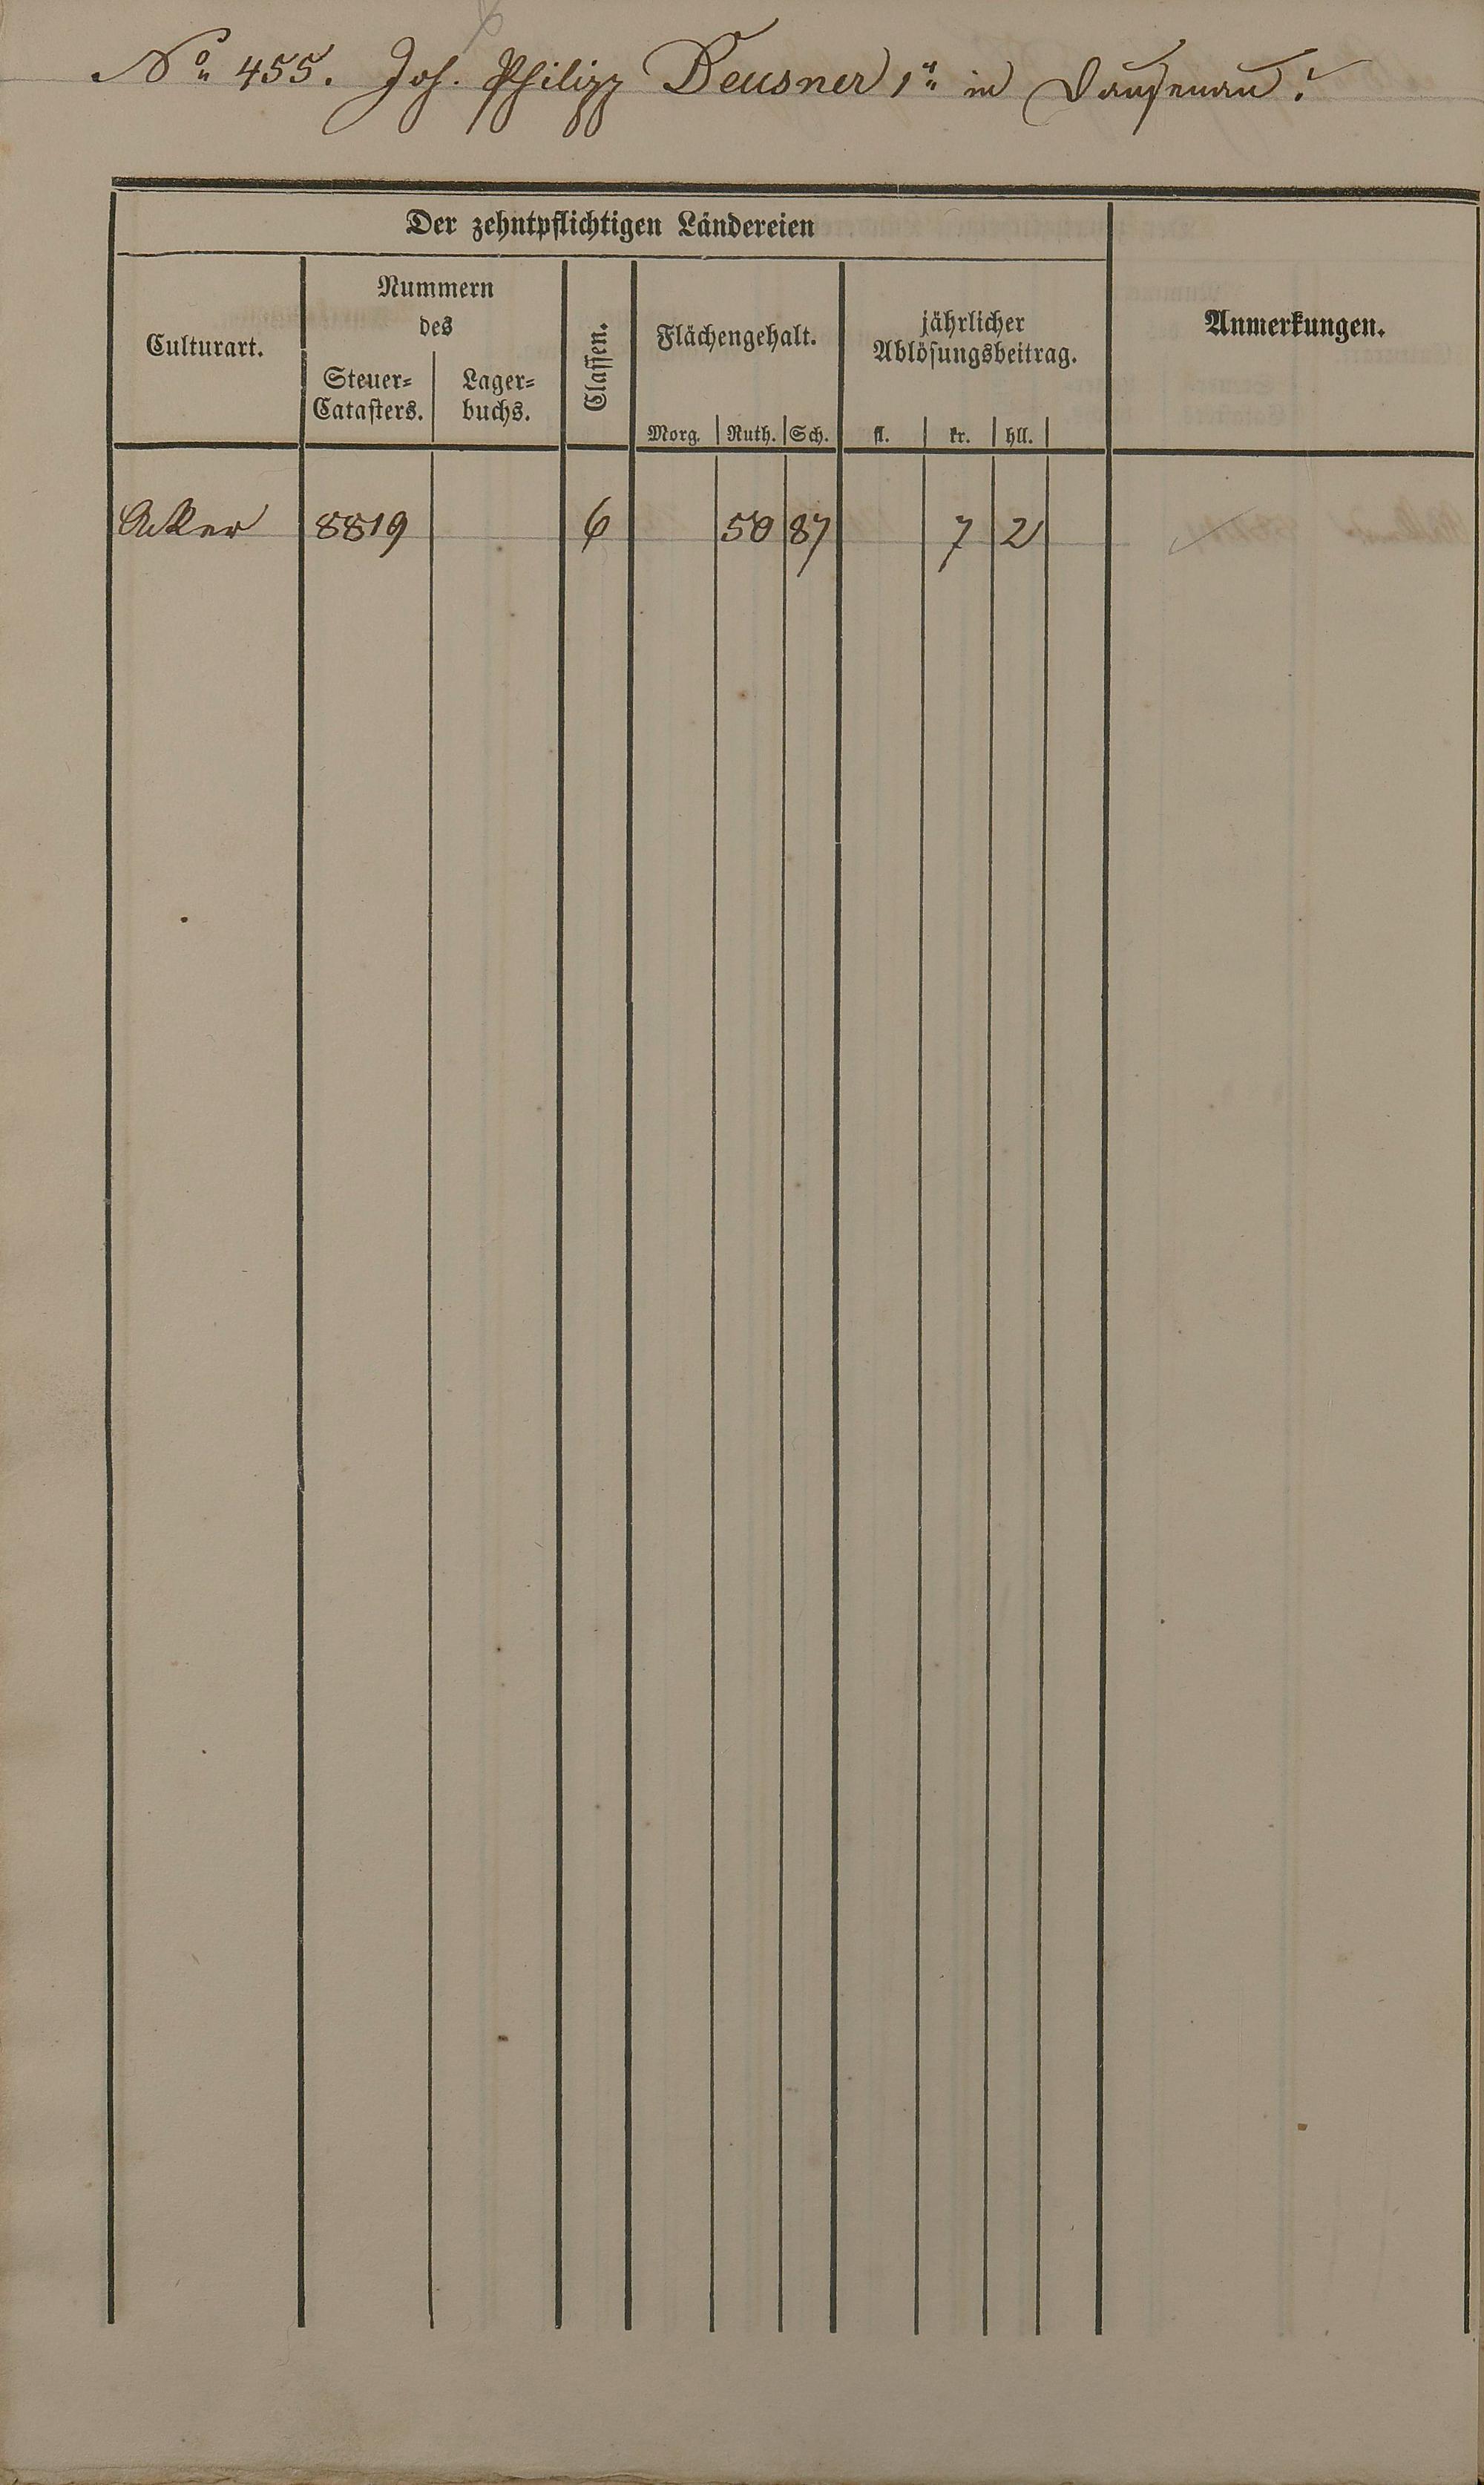 No. 455. Joh. Philipp Beusner 1r in Dausenau.
Der zehntpflichtigen Ländereien
Culturart.
Nummern
des
Steuer=
Catasters.
Lager=
buchs.
Classen.
Flächengehalt.
Morg. Ruth. Sch.
jährlicher
Ablösungsbeitrag.
fl. kr. hll.
Anmerkungen.
Acker 8819 6 50 87 7 2